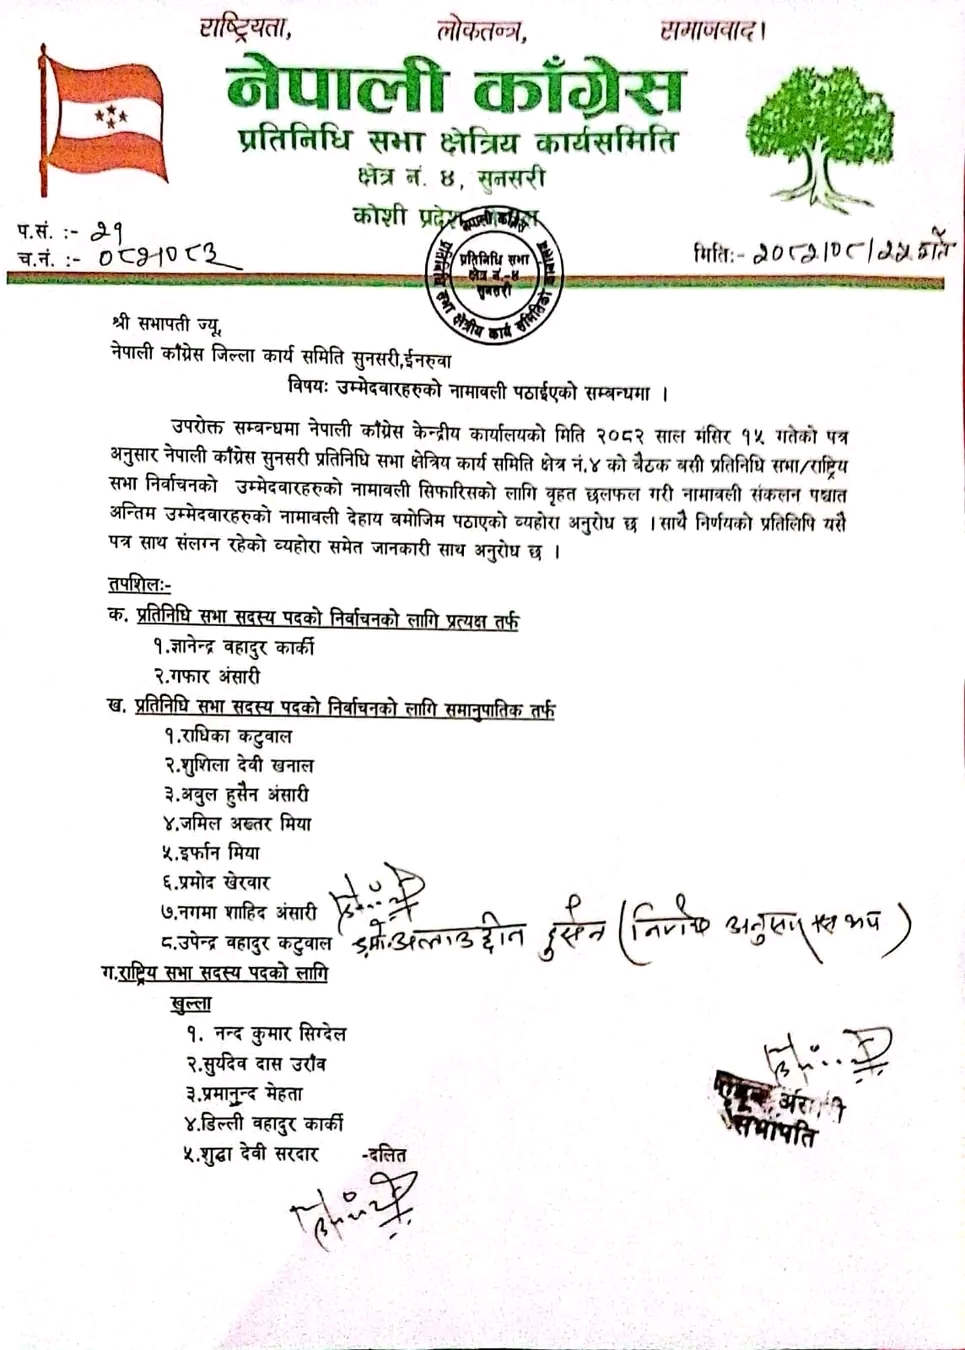 राष्ट्रियता, लोकतन्त्र, समाजवाद।
नेपाली काँग्रेस
प्रतिनिधि सभा क्षेत्रिय कार्यसमिति
क्षेत्र नं. ४, सुनसरी
कोशी प्रदेश
प.सं. :- २१
च.नं. :- ०८२।०८३
मितिः- २०८२।०८।२५ गते
नेपाली काँग्रेस
प्रतिनिधि सभा
क्षेत्र नं.-४
सुनसरी
प्रतिनिधि सभा क्षेत्रीय कार्य समितिको
श्री सभापती ज्यू,
नेपाली काँग्रेस जिल्ला कार्य समिति सुनसरी,ईनरुवा
विषयः उम्मेदवारहरुको नामावली पठाईएको सम्बन्धमा ।
उपरोक्त सम्बन्धमा नेपाली काँग्रेस केन्द्रीय कार्यालयको मिति २०८२ साल मंसिर १५ गतेको पत्र
अनुसार नेपाली काँग्रेस सुनसरी प्रतिनिधि सभा क्षेत्रिय कार्य समिति क्षेत्र नं.४ को बैठक बसी प्रतिनिधि सभा/राष्ट्रिय
सभा निर्वाचनको उम्मेदवारहरुको नामावली सिफारिसको लागि वृहत छलफल गरी नामावली संकलन पश्चात
अन्तिम उम्मेदवारहरुको नामावली देहाय बमोजिम पठाएको व्यहोरा अनुरोध छ ।साथै निर्णयको प्रतिलिपि यसै
पत्र साथ संलग्न रहेको व्यहोरा समेत जानकारी साथ अनुरोध छ ।
तपशिलः-
क. प्रतिनिधि सभा सदस्य पदको निर्वाचनको लागि प्रत्यक्ष तर्फ
१.ज्ञानेन्द्र वहादुर कार्की
२.गफार अंसारी
ख. प्रतिनिधि सभा सदस्य पदको निर्वाचनको लागि समानुपातिक तर्फ
१.राधिका कटुवाल
२.शुशिला देवी खनाल
३.अबुल हुसैन अंसारी
४.जमिल अख्तर मिया
५.इर्फान मिया
६.प्रमोद खेरवार
७.नगमा शाहिद अंसारी
८.उपेन्द्र वहादुर कटुवाल
अलाउद्दीन हुसेन (निर्णय अनुसार थप)
ग.राष्ट्रिय सभा सदस्य पदको लागि
खुल्ला
१. नन्द कुमार सिग्देल
२.सुर्यदेव दास उराँव
३.प्रमानुन्द मेहता
४.डिल्ली वहादुर कार्की
५.शुद्धा देवी सरदार -दलित
सभापति